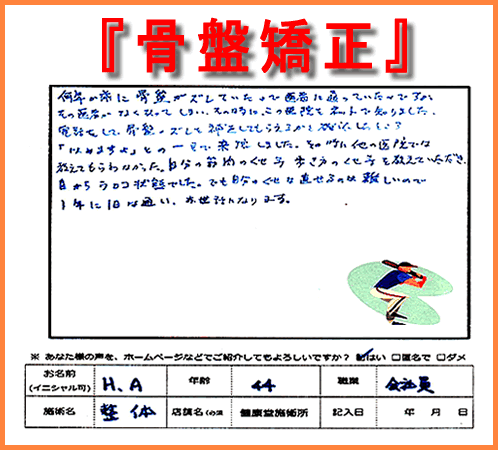 『骨盤矯正』
何年か前に骨盤がズレていたので医者に通っていたのですが
その医者がなくなってしまい、その時にこの医院をネットで知りました。
電話をして骨盤のズレを矯正してもらえるかと確認したところ
「いいますよ」との一言で来院しました。その時に他の医院では
教えてもらわなかった。自分の筋肉のくせや歩き方のくせ等を教えていただき、
目からウロコ状態でした。でも自分のくせを直せるのは難しいので
1年に1回は通い、お世話になります。
※ あなた様の声を、ホームページなどでご紹介してもよろしいですか? ☑はい □匿名で □ダメ
お名前 (イニシャル可) H.A 年齢 44 職業 会社員
施術名 整体 店舗名 健康堂施術所 記入日 年 月 日